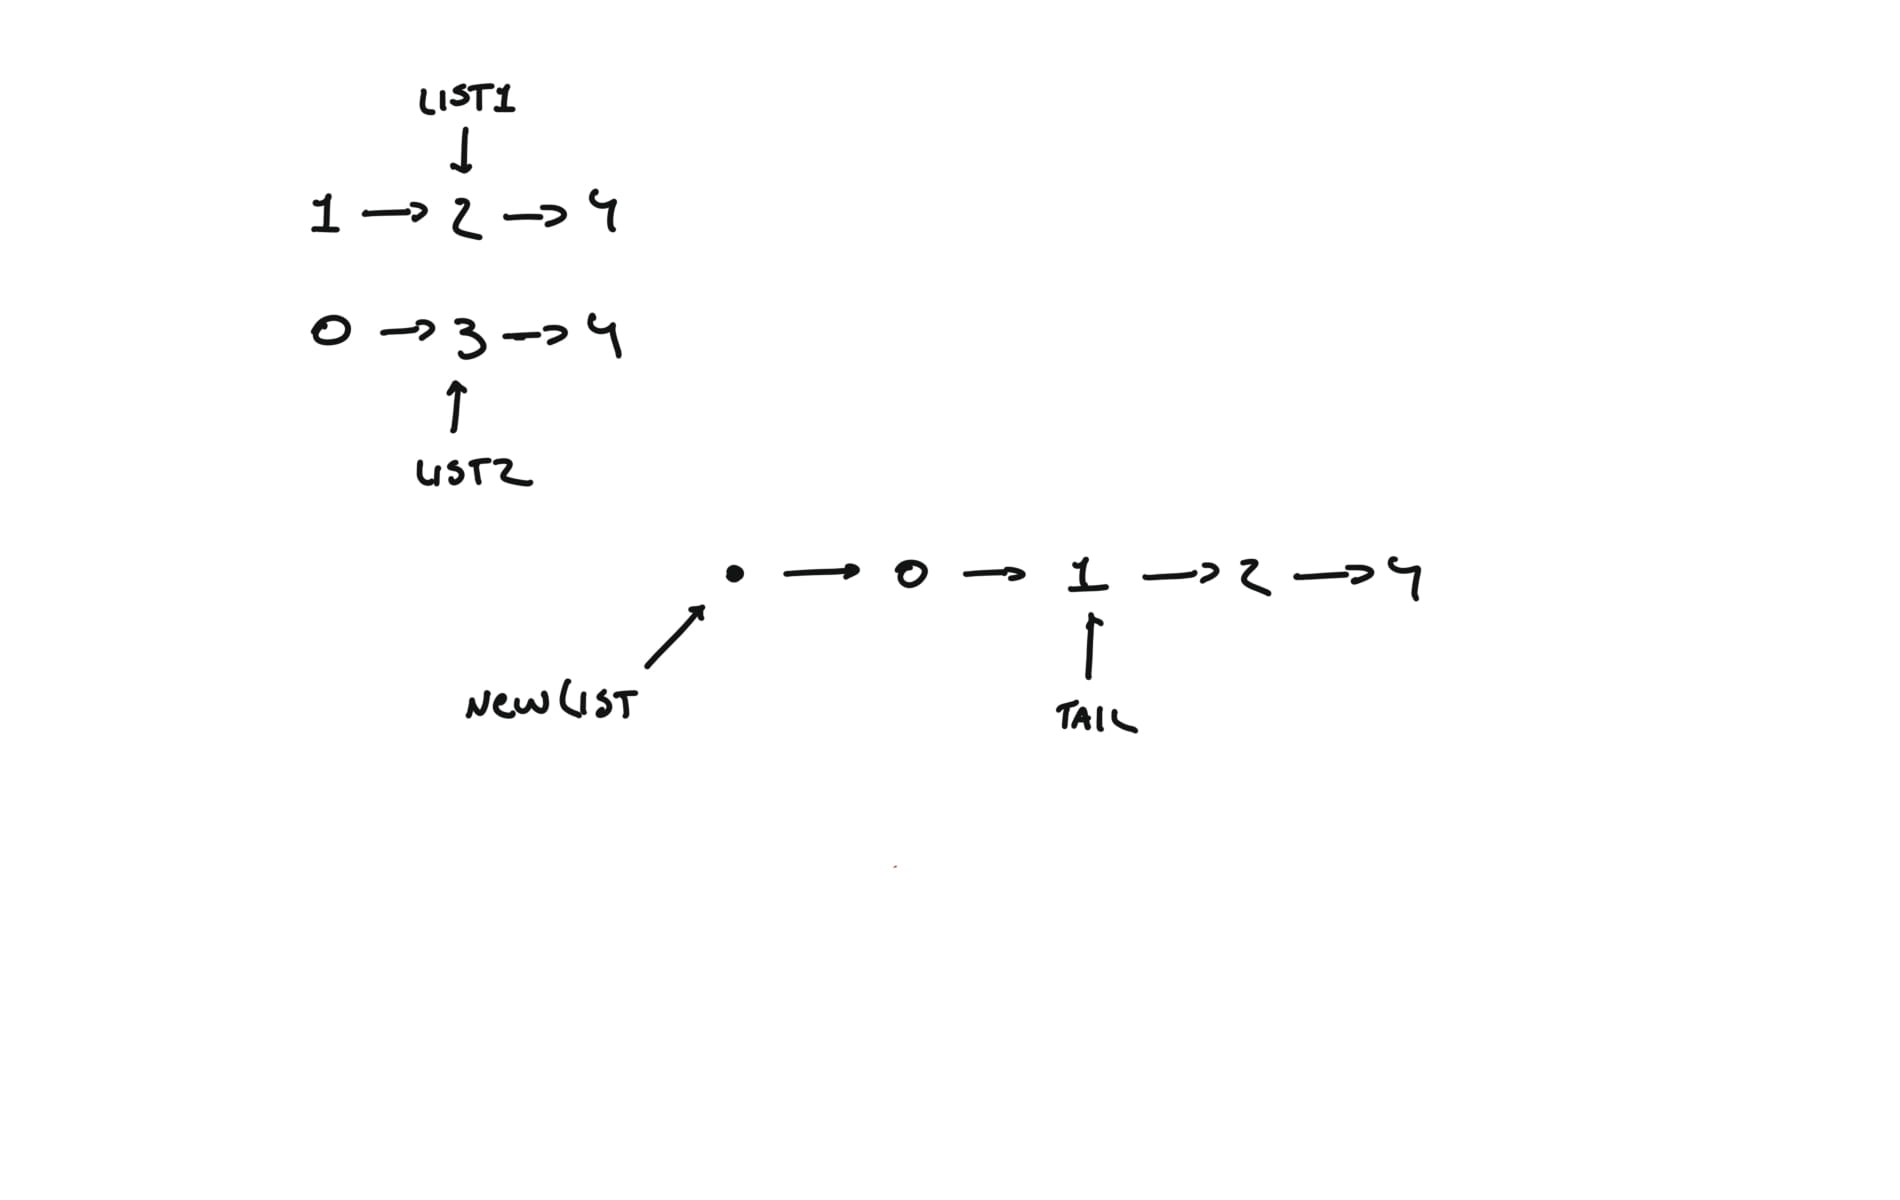 LIST1
1 → 2 → 4
0 → 3 → 4
LIST2
• → 0 → 1 → 2 → 4
NEWLIST
TAIL